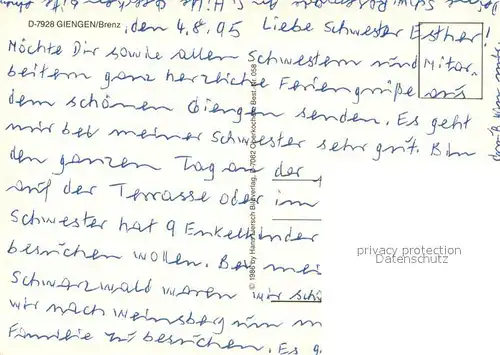 D-7928 GIENGEN/Brenz
, den 4.8.95 Liebe Schwester Esther!
Möchte Dir sowie allen Schwestern und Mitar-
beitern ganz herzliche Feriengrüße aus
dem schönen Giengen senden. Es geht
mir bei meiner Schwester sehr gut. Bin
den ganzen Tag an der
auf der Terrasse oder im
Schwester hat 9 Enkelkinder
besuchen wollen. Bei mei
Schwarzwald waren wir schö
wir nach Weinsberg um m
Familie zu besuchen. Es g
© 1986 by Hammerisch Bildverlag, D-7082 Oberkochen Best.-Nr. 058
privacy protection
Datenschutz